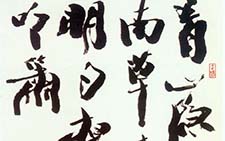 青山隐
南草
明月夜
吹箫